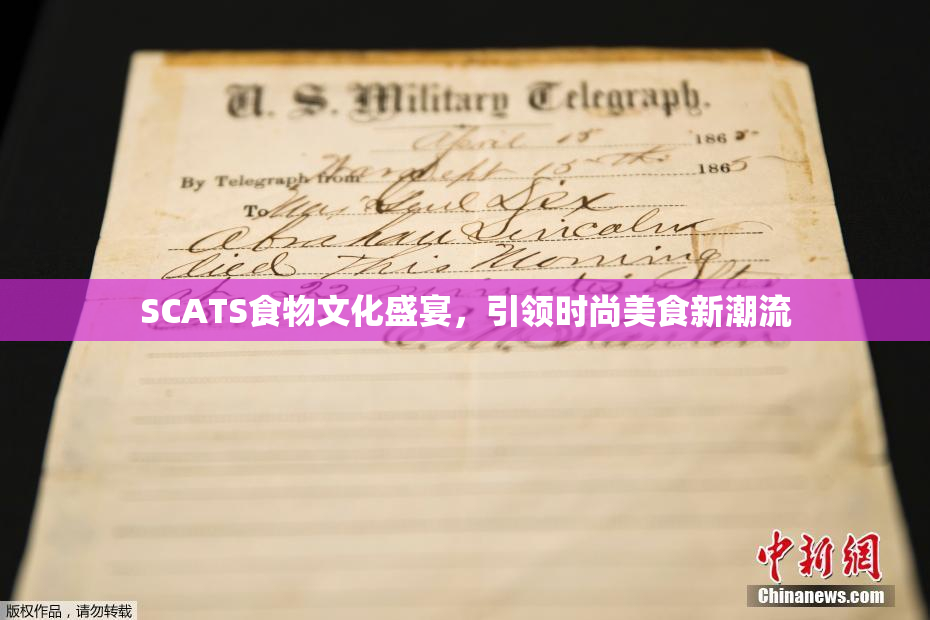 U. S. Military Telegraph.
April 15 1865
By Telegraph from War Dept 15th 1865
To Maj Genl Dix
Abraham Lincoln
died This Morning
at 22 minutes after
SCATS食物文化盛宴，引领时尚美食新潮流
中新网
Chinanews.com
版权作品，请勿转载